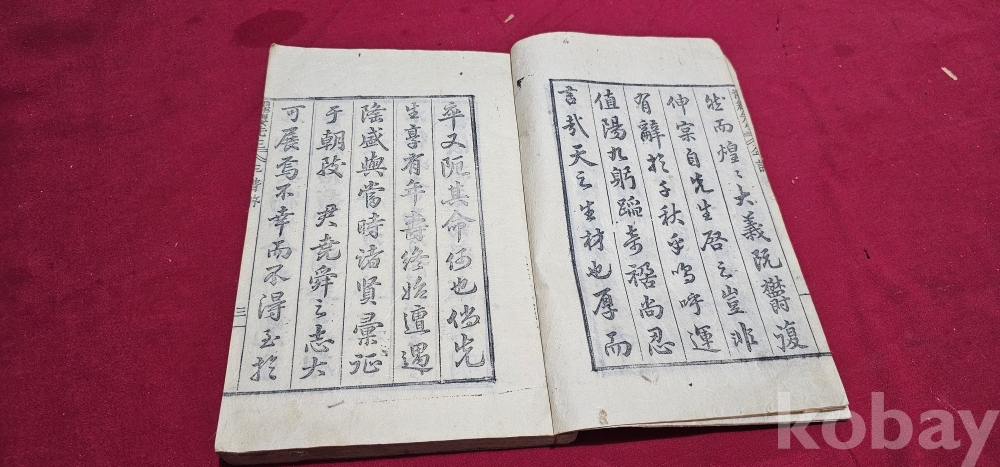 然而煌〻大義阮鬱復
伸宗自先生啓之豈非
有辭於千秋乎嗚呼運
值陽九躬蹈奇禍尚忍
言哉天之生材也厚而
卒又阨其命何也倘先
生享有年壽終始遭遇
隆盛與當時諸賢彙征
于朝致 君堯舜之志大
可展焉不幸而不得至於
三
kobay